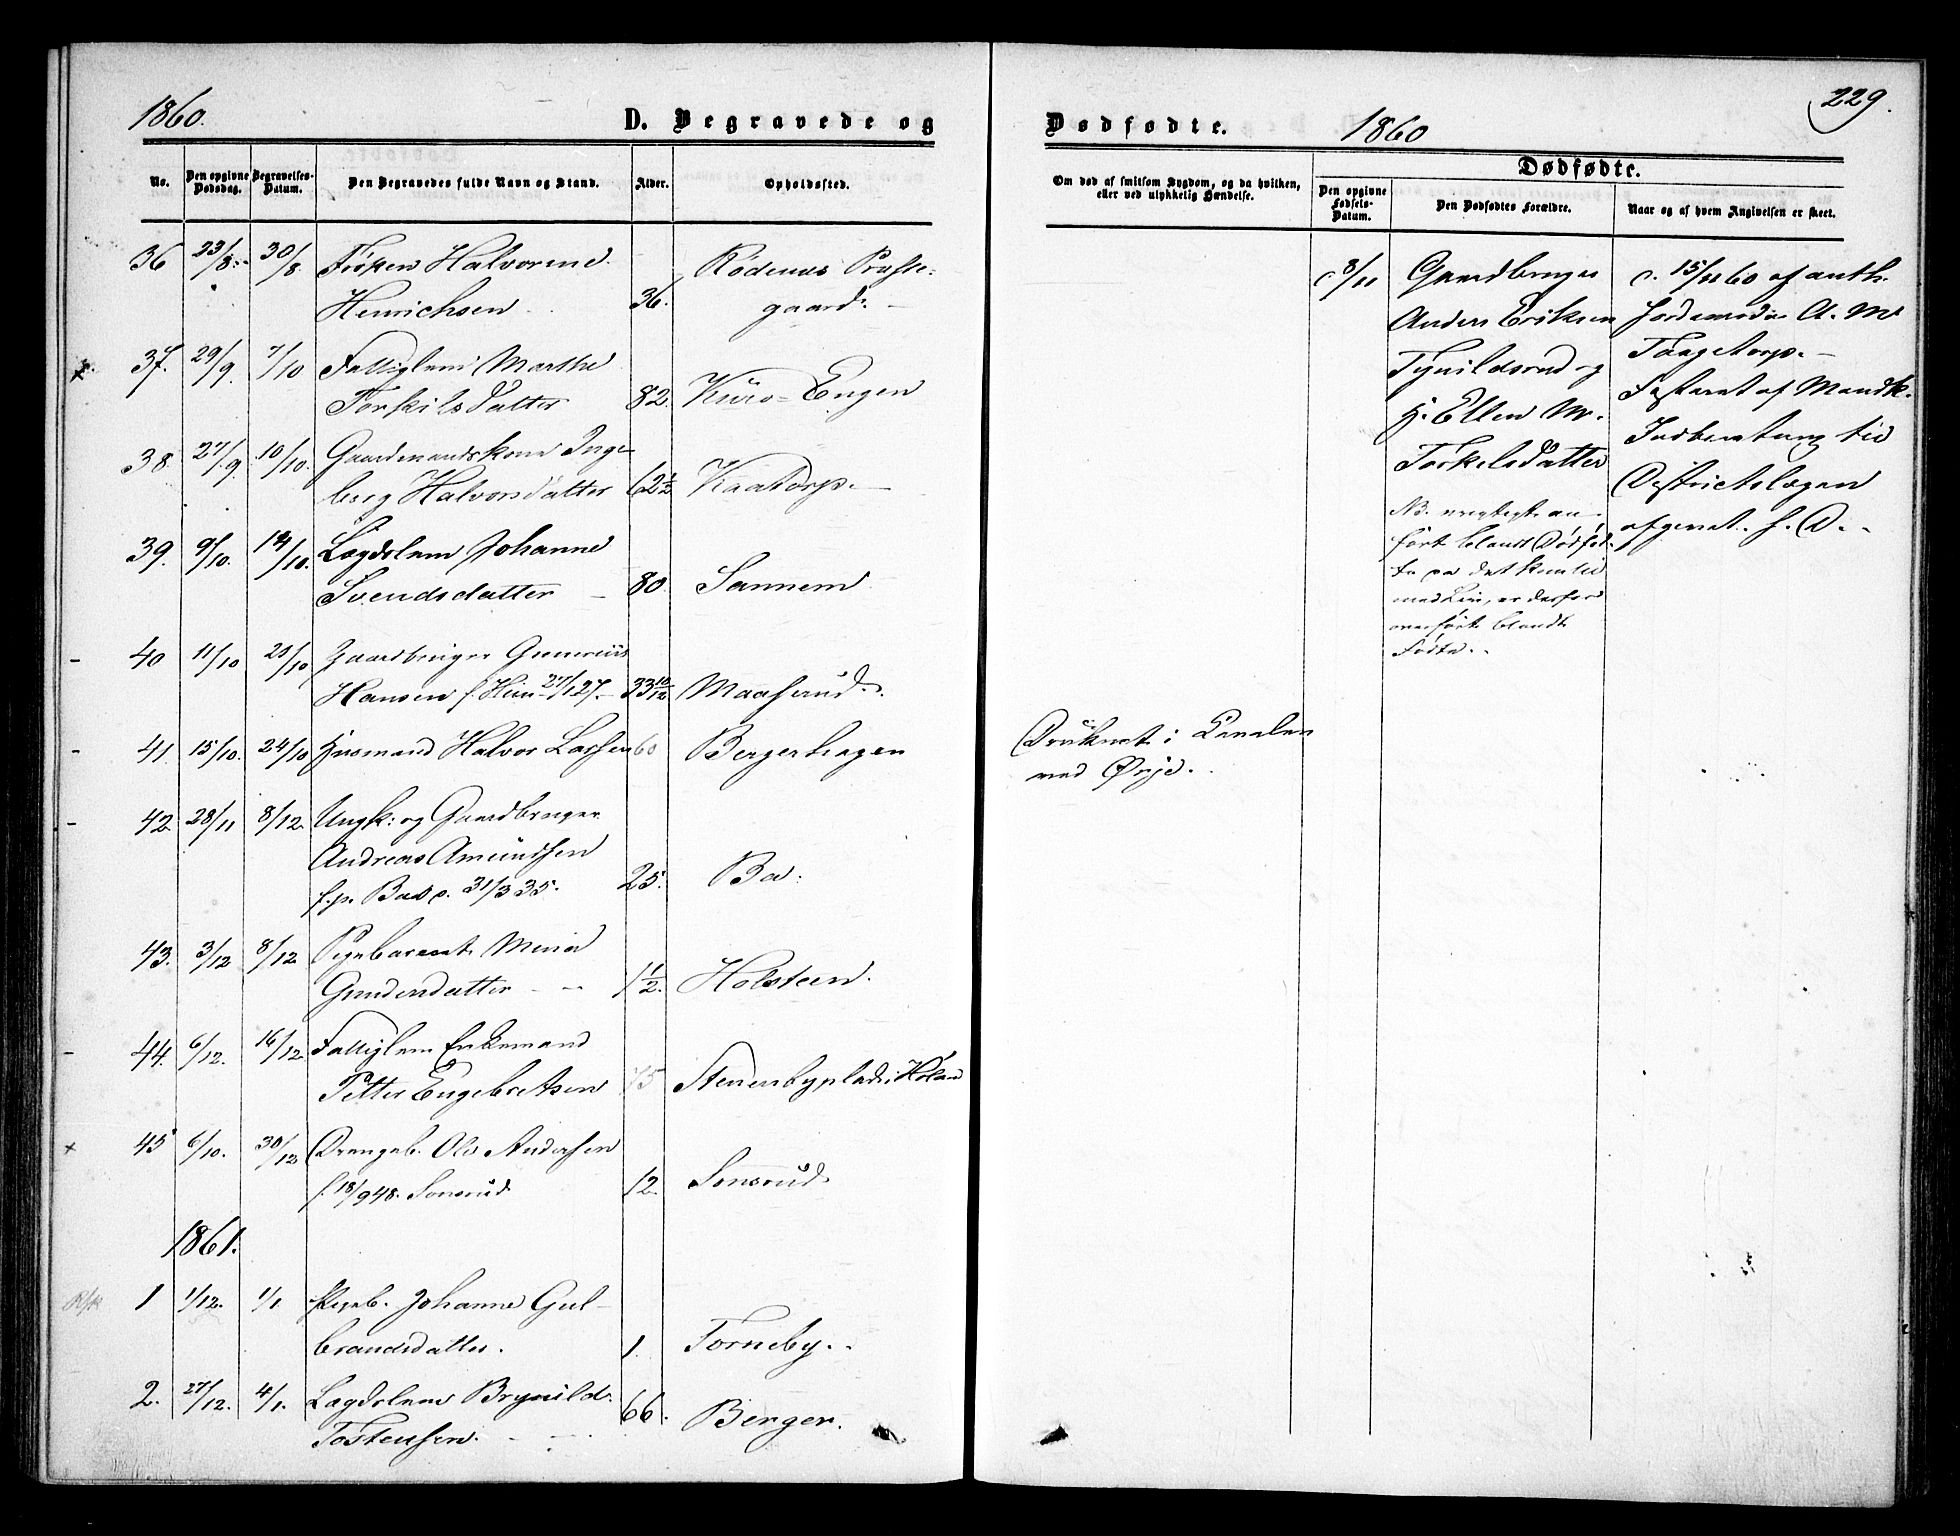 1860.
D. Begravede og
No.
Den opgivne Dødsdag.
Begravelses-Datum.
Den Begravedes fulde Navn og Stand.
Alder.
Opholdssted.
36 23/8. 30/8 Frøken Halvorine
Henrichsen 36. Rødenæs Præste-
gaard.
37. 29/9. 7/10 Fattiglem Marthe
Torkilsdatter 82. Küro-Engen
38. 27/9 10/10. Gaardmandskone Inge-
berg Halvorsdatter 62½ Kaatorp.
39. 9/10. 14/10. Lægdslem Johanne
Svendsdatter 80. Sannem
40 11/10 23/10 Gaardbruger Gunerius
Hansen f. 27/1 27. 33 10/12 Maaserud.
41. 15/10. 24/10 Husmand Halvor Larsen 60 Bergerhagen
42. 28/11 8/12. Ungk: og Gaardbruger
Andreas Amundsen
f. p. Ba d. 31/3 35. 25. Ba.
43. 3/12 8/12 Pigebarnet Mina
Gundersdatter 1½. Holsteen.
44. 6/12. 16/12 Fattiglem Enkemand
Petter Engebretsen 75 Stenersbyplads i Høland
45 6/10. 30/12 Drengeb. Ole Andersen
f. 18/9 48. Sonsrud 12. Sonsrud.
1861.
1 1/12. 1/1. Pigeb. Johanne Gul-
brandsdatter. 1. Torneby.
2. 27/12. 4/1. Lægdslem Brynild
Tostensen. 66. Berger.
229.
Dødfødte.
1860
Om død af smitsom Sygdom, og da hvilken,
eller ved ulykkelig Hændelse.
Dødfødte.
Den opgivne Fødsels-Datum.
Den Dødfødtes Forældre.
Naar og af hvem Angivelsen er skeet.
Druknet i Canalen
ved Ørje.
c. 8/11
Gaardbruger
Anders Eriksen
og
H. Ellen M.
Torkelsdatter
NB. urigtigt an-
ført blandt Dødfød-
te da det kom til
med Liv, er derfor
overført blandt
Fødte.
c. 15/11 60 af auth.
Jordemoder A. M.
Taagetorp.
Besternet af Mandk.
Indberetning til
Districtslægen
afgivet. S. D.